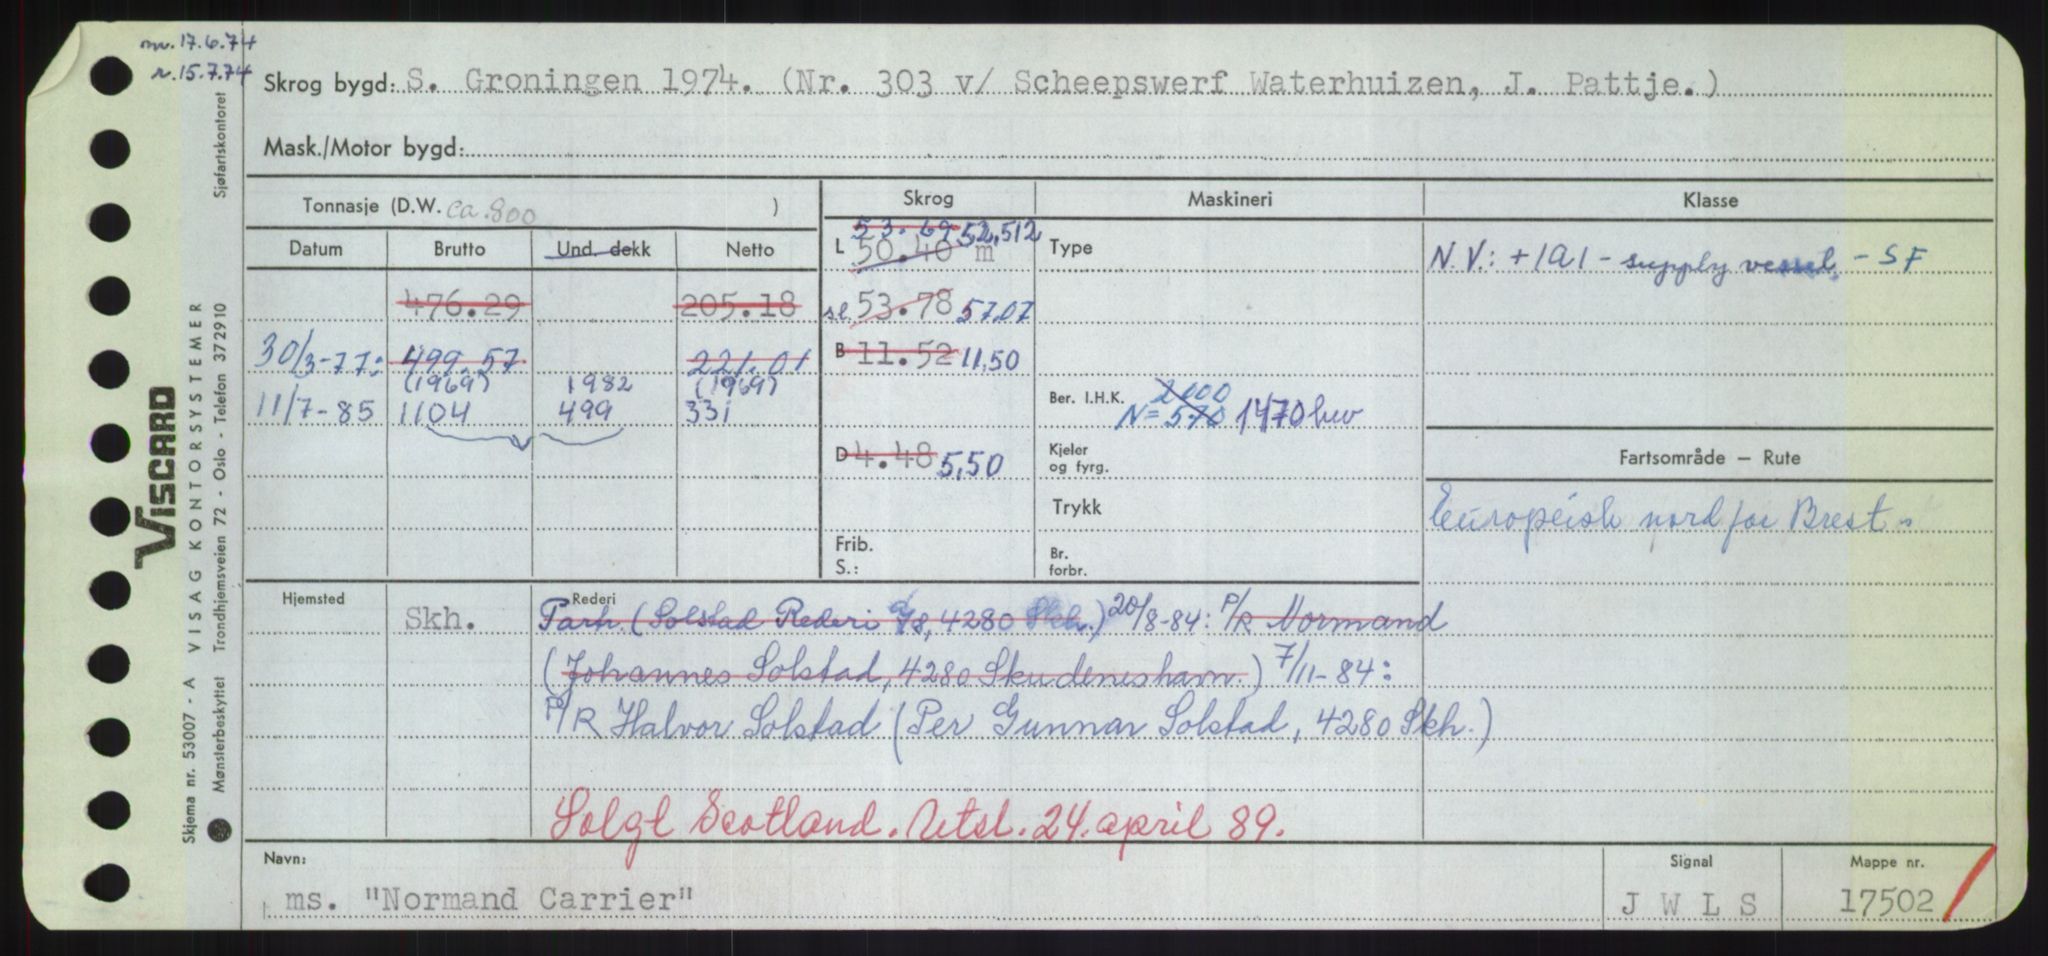 nv. 17.6.74
r. 15.7.74
Skrog bygd: S. Groningen 1974. (Nr. 303 v/ Scheepswerf Waterhuizen, J. Pattje.)
Mask./Motor bygd:
Tonnasje (D.W. ca. 800 )
Skrog
Maskineri
Klasse
Datum Brutto Und. dekk Netto
53.69 52,512
L 50.40 m
Type
N.V.: +1A1 - supply vessel - SF
476.29 205.18
sl. 53.78 57,07
30/3-77: 499.57 221.01
B 11.52 11,50
(1969) 1982 (1969)
11/7-85 1104 499 331
Ber. I.H.K. 2000
N= 570 1470 hv
D 4.48 5,50
Kjeler
og fyrg.
Fartsområde — Rute
Trykk
Europeisk nord for Brest -
Frib.
S.:
Br.
forbr.
Hjemsted
Rederi
Skh.
Parh. (Solstad Rederi A/S, 4280 Skh.) 20/8-84: P/R Normand
(Johannes Solstad, 4280 Skudeneshavn.) 7/11-84:
P/R Halvor Solstad (Per Gunnar Solstad, 4280 Skh.)
Solgt Scotland. Utsl. 24. april 89.
Navn:
Signal
Mappe nr.
ms. "Normand Carrier"
J W L S
17502
Sjøfartskontoret
VISCARD
VISAG KONTORSYSTEMER
Trondhjemsveien 72 - Oslo - Telefon 372910
Skjema nr. 53007 - A
Mønsterbeskyttet